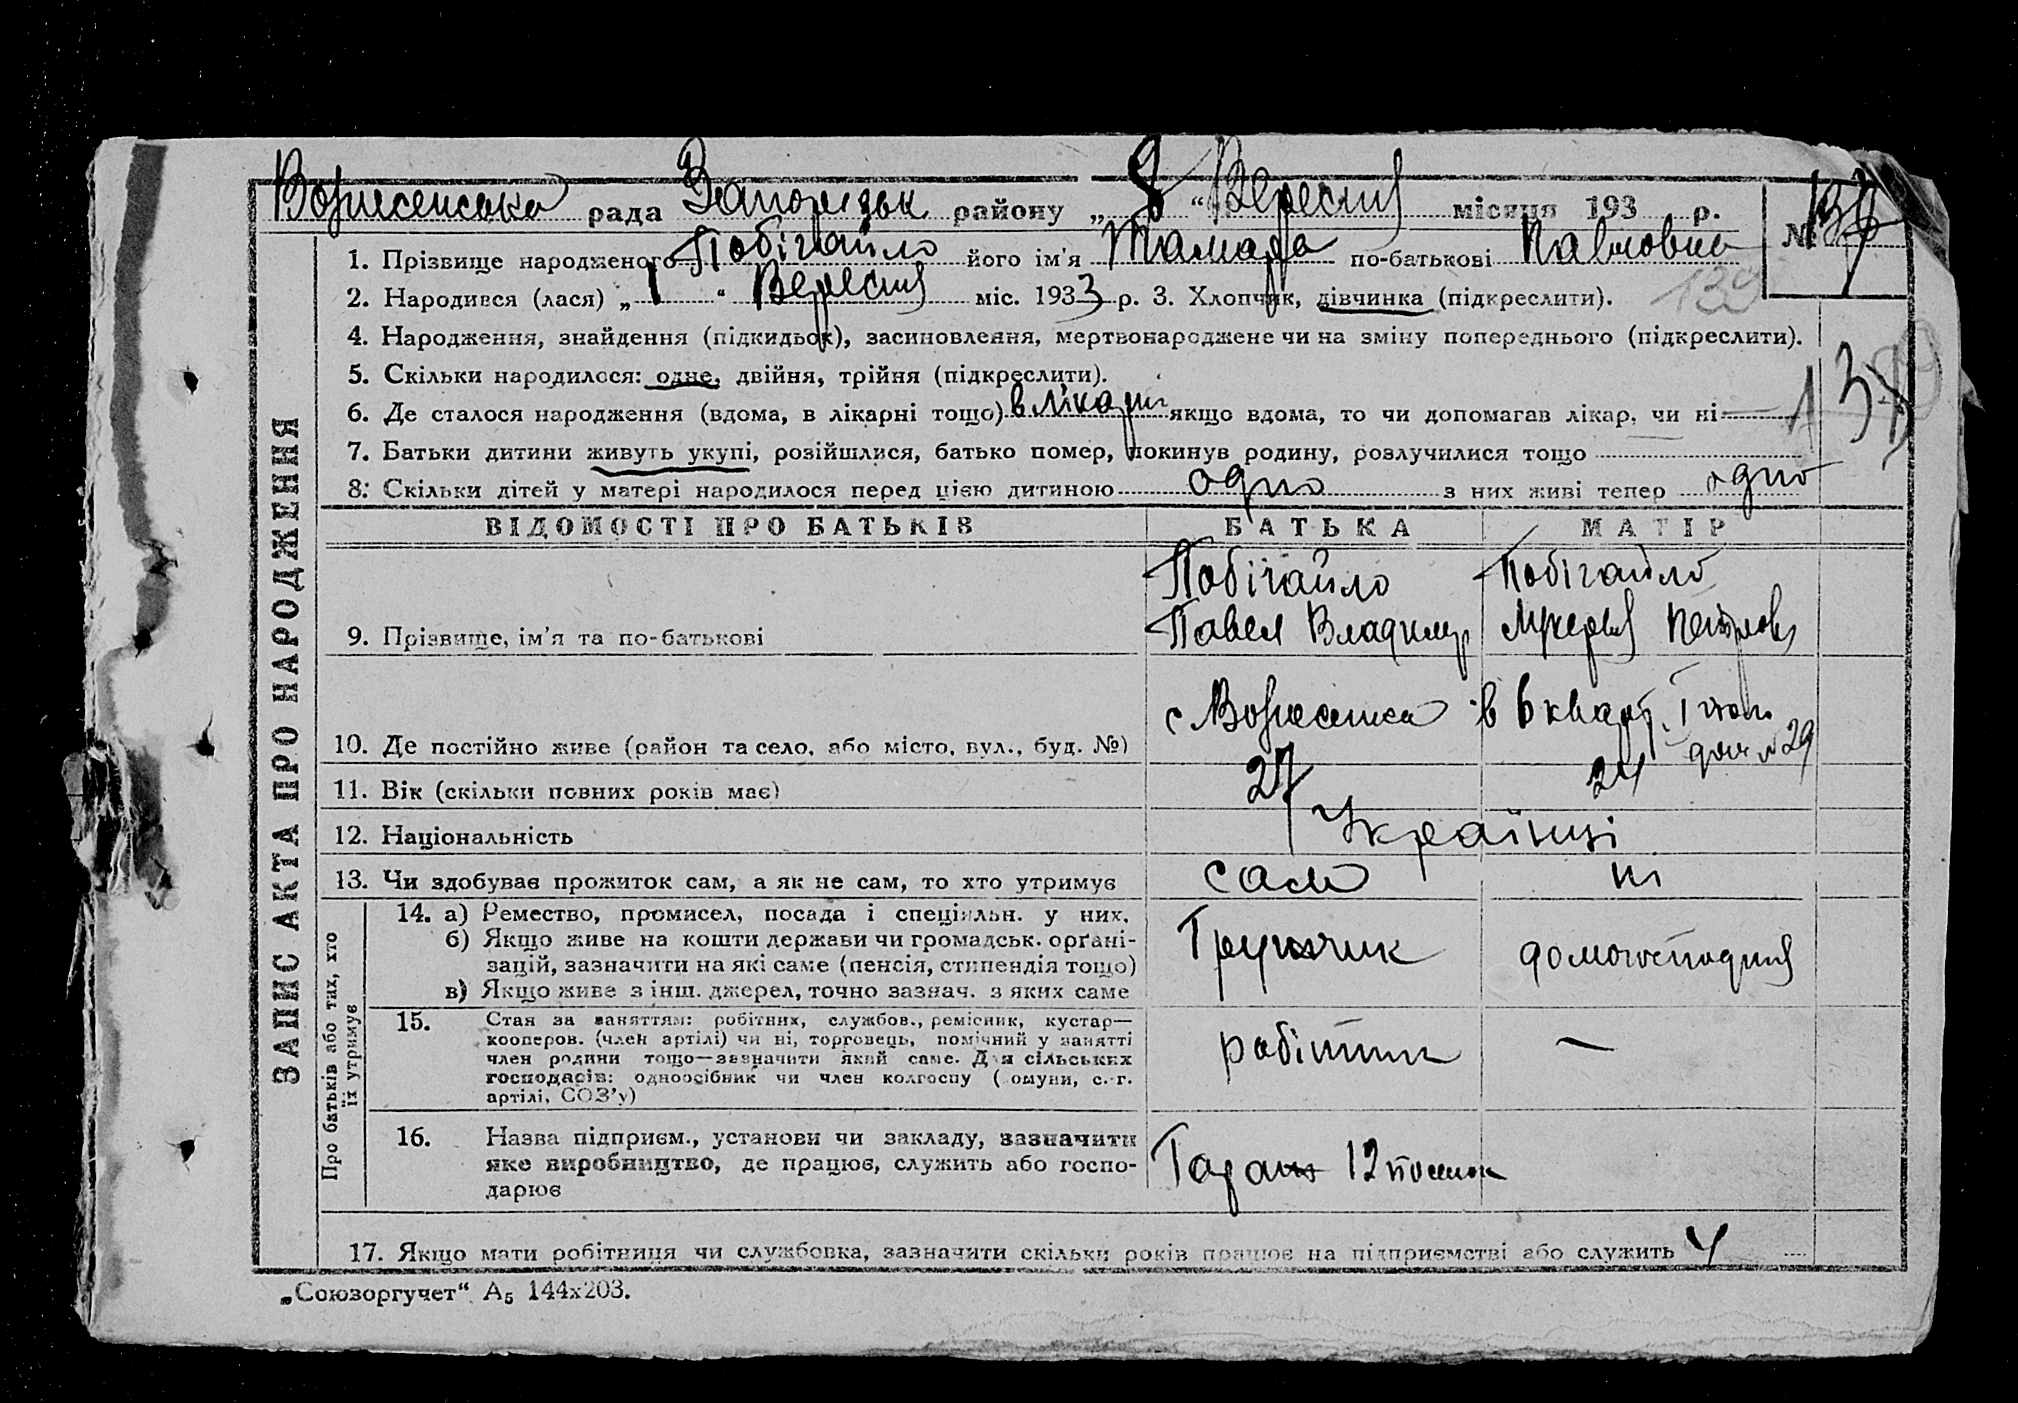 Вознесенська рада Запорізьк району „ 8 “ Вересня місяця 193 р.
№
1. Прізвище народженого Побігайло його ім'я Тамара по-батькові Павловна
2. Народився (лася) „ 1 “ Вересня міс. 1933 р. 3. Хлопчик, дівчинка (підкреслити).
139
4. Народження, знайдення (підкидьок), засиновлення, мертвонароджене чи на зміну попереднього (підкреслити).
5. Скільки народилося: одне, двійня, трійня (підкреслити).
6. Де сталося народження (вдома, в лікарні тощо) в лікарні якщо вдома, то чи допомагав лікар, чи ні
7. Батьки дитини живуть укупі, розійшлися, батько помер, покинув родину, розлучилися тощо
8. Скільки дітей у матері народилося перед цією дитиною одно з них живі тепер одно
ЗАПИС АКТА ПРО НАРОДЖЕННЯ
ВІДОМОСТІ ПРО БАТЬКІВ БАТЬКА МАТІР
Побігайло Побігайло
9. Прізвище, ім'я та по-батькові Павел Владимир
10. Де постійно живе (район та село, або місто, вул., буд. №) с Вознесенка в 6 кварт.
29
11. Вік (скільки повних років має) 27 24
12. Національність Українці
13. Чи здобуває прожиток сам, а як не сам, то хто утримує сам ні
Про батьків або тих, хто їх утримує
14. а) Ремество, промисел, посада і спеціяльн. у них.
б) Якщо живе на кошти держави чи громадськ. орґані-
зацій, зазначити на які саме (пенсія, стипендія тощо)
в) Якщо живе з інш. джерел, точно зазнач. з яких саме
домогосподиня
15. Стан за заняттям: робітник, службов., ремісник, кустар—
кооперов. (член артілі) чи ні, торговець, помічний у занятті
член родини тощо—зазначити який саме. Для сільських
господарів: одноосібник чи член колгоспу (комуни, с.-г.
артілі, СОЗ'у)
робітник —
16. Назва підприєм., установи чи закладу, зазначити
яке виробництво, де працює, служить або госпо-
дарює
12
17. Якщо мати робітниця чи службовка, зазначити скільки років працює на підприємстві або служить
„Союзоргучет“ А5 144х203.